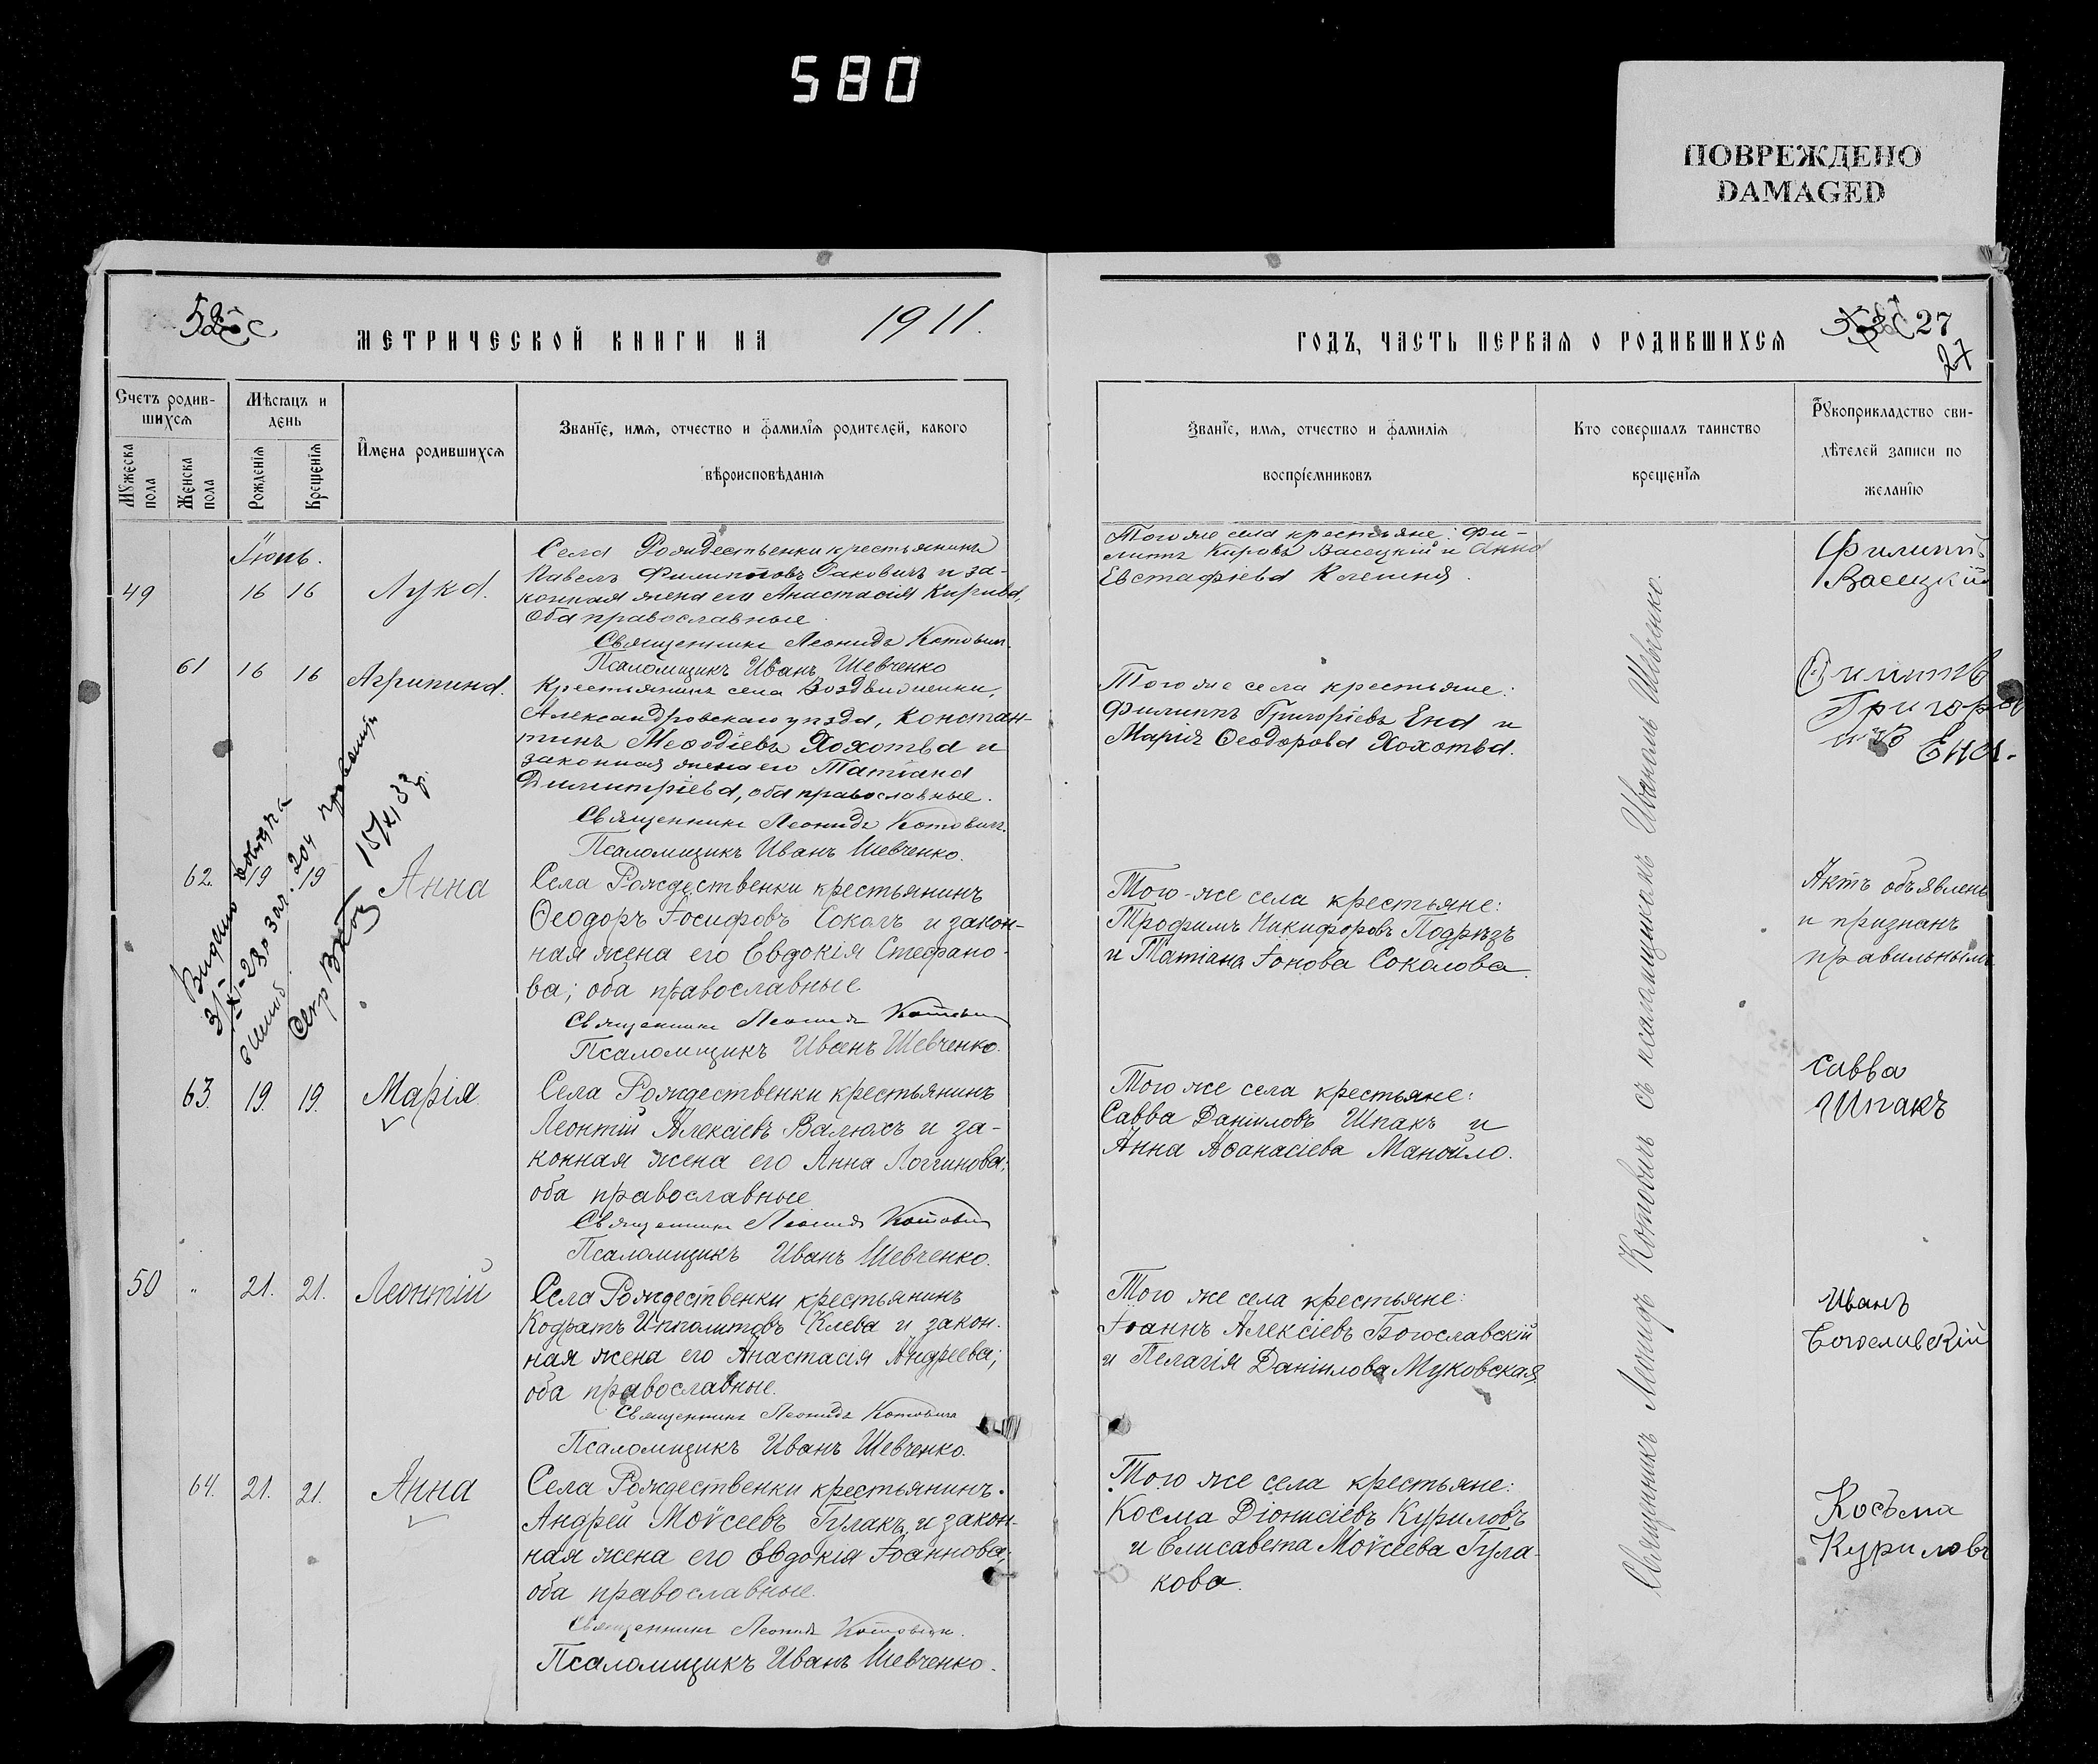 580
ПОВРЕЖДЕНО
DAMAGED
МЕТРИЧЕСКОЙ КНИГИ НА
1911.
Счетъ родив-
шихся
Мѣсяцъ и
день
Мужеска
пола
Женска
пола
Рожденія
Крещенія
Имена родившихся
Званіе, имя, отчество и фамилія родителей, какого
вѣроисповѣданія
Іюнь.
49
16 16
Лука.
Села Рождественки крестьянинъ
Павелъ Филипповъ Ракович и за-
конная жена его Анастасія Кирова,
оба православные
Священникъ Леонидъ Котович
Псаломщикъ Иванъ Шевченко
61
16 16
Агрипина.
Крестьянинъ села Воздвиженки,
Александровскаго уѣзда, Констан-
тинъ Меѳодіевъ Хохотва и
законная жена его Татіана
Димитріева, оба православные.
Священникъ Леонидъ Котович
Псаломщикъ Иванъ Шевченко.
15/XI 33 г.
62.
19 19
Анна
Села Рождественки крестьянинъ
Ѳеодоръ Іосифовъ Соколъ и закон-
ная жена его Евдокія Стефано-
ва; оба православные
Священникъ Леонидъ Котович
Псаломщикъ Иванъ Шевченко.
63.
19. 19.
Марія
Села Рождественки крестьянинъ
Леонтій Алексіевъ Валюхъ и за-
конная жена его Анна Логгинова;
оба православные
Священникъ Леонидъ Котович
Псаломщикъ Иванъ Шевченко.
50 "
21. 21.
Леонтій
Села Рождественки крестьянинъ
Кодратъ Ипполитовъ Клева и закон-
ная жена его Анастасія Андреева;
оба православные.
Священникъ Леонидъ Котовичъ
Псаломщикъ Иванъ Шевченко.
64.
21. 21.
Анна
Села Рождественки крестьянинъ
Андрей Моѵсеевъ Гулакъ и закон-
ная жена его Евдокія Іоаннова;
оба православные.
Священникъ Леонидъ Котович.
Псаломщикъ Иванъ Шевченко.
ГОДЪ, ЧАСТЬ ПЕРВАЯ О РОДИВШИХСЯ
27
27
Званіе, имя, отчество и фамилія
воспріемниковъ
Кто совершалъ таинство
крещенія
Рукоприкладство сви-
дѣтелей записи по
желанію
Того же села крестьяне: Фи-
липпъ Кировъ Васецкій и Анна
Евстафіева
Филиппъ
Васецкій
Того же села крестьяне:
Филиппъ Григоріевъ Ена и
Марія Ѳеодорова Хохотва.
Филиппъ
Григорі
евъ Ена.
Того-же села крестьяне:
Трофимъ Никифоровъ Подрѣзъ
и Татіана Іонова Соколова.
Актъ объявленъ
и признанъ
правильнымъ
Того же села крестьяне:
Савва Даніиловъ Шпакъ и
Анна Аѳанасіева Манойло.
Савва
Шпакъ
Того же села крестьяне:
Іоаннъ Алексіевъ Богославскій
и Пелагія Даніилова Муковская.
Иванъ
Богославскій
Того же села крестьяне:
Косма Діонисіевъ Куриловъ
и Елисавета Моѵсеева Гула-
кова.
Косьма
Куриловъ
Священникъ Леонидъ Котовичъ съ псаломщикомъ Иваномъ Шевченко.